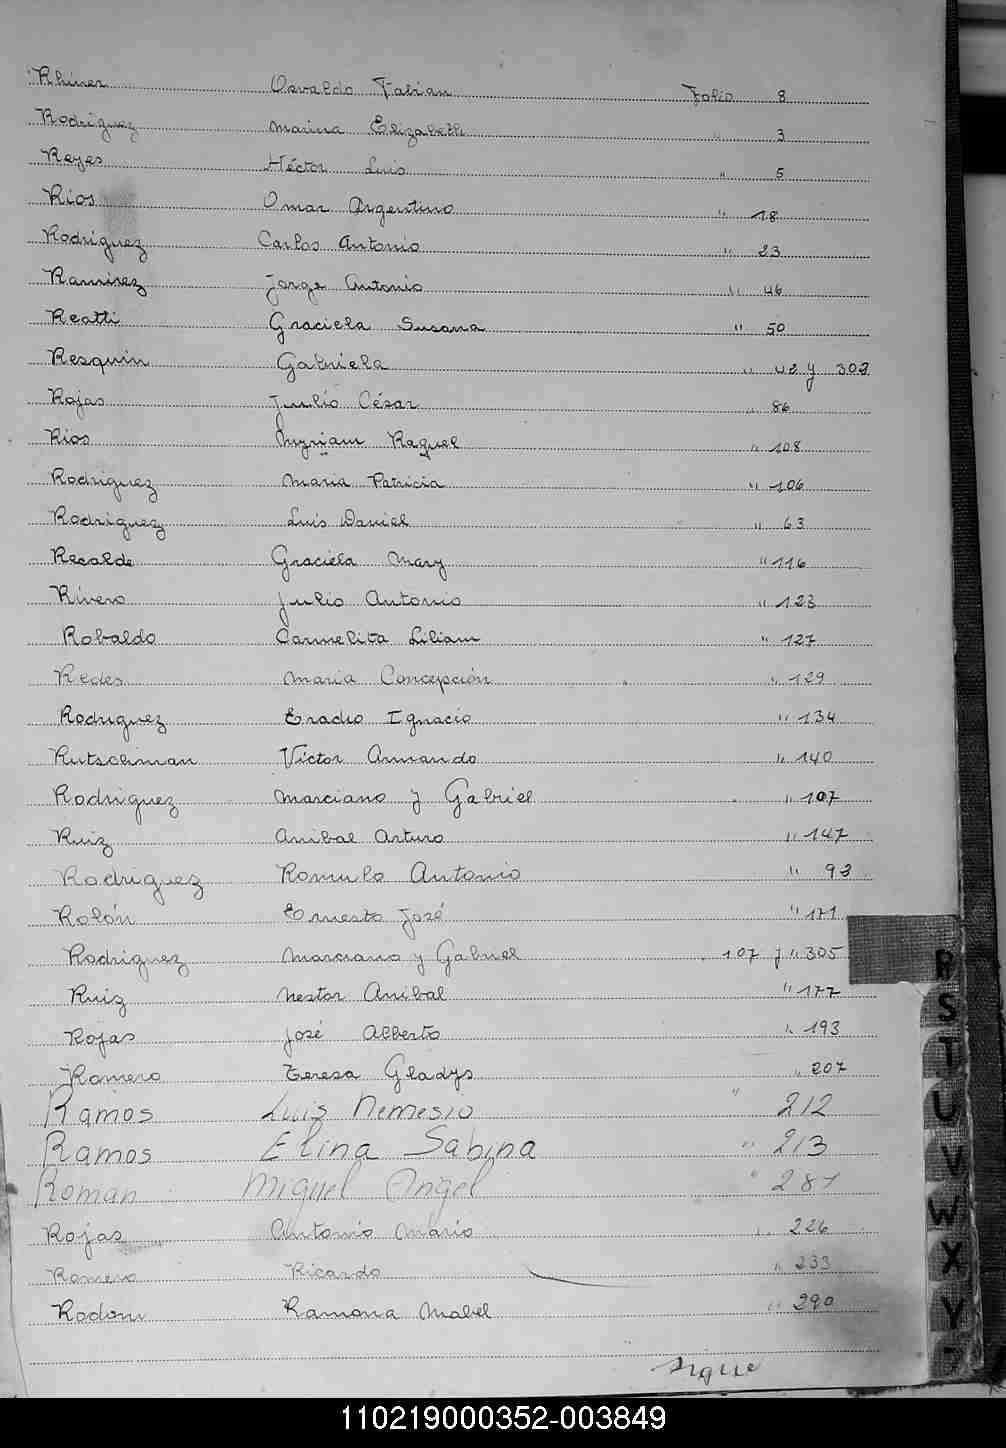 Rhiner Osvaldo Fabian Folio 8
Rodriguez Marina Elizabeth " 3
Reyes Héctor Luis " 5
Rios Omar Argentino " 18
Rodriguez Carlos Antonio " 23
Ramirez Jorge Antonio " 46
Reatti Graciela Susana " 50
Resquin Gabriela " 42 y 303
Rojas Julio César " 86
Rios Myriam Raquel " 108
Rodriguez Maria Patricia " 106
Rodriguez Luis Daniel " 63
Recalde Graciela Mary " 116
Rivero Julio Antonio " 123
Robaldo Carmelita Liliam " 127
Redes Maria Concepción " 129
Rodriguez Eradio Ignacio " 134
Rutschman Víctor Armando " 140
Rodriguez Marciano y Gabriel " 107
Ruiz Anibal Arturo " 147
Rodriguez Romulo Antonio " 93
Rolón Ernesto José " 171
Rodriguez Marciano y Gabriel 107 y " 305
Ruiz Nestor Anibal " 177
Rojas José Alberto " 193
Romero Teresa Gladys " 207
Ramos Luis Nemesio " 212
Ramos Elina Sabina " 213
Roman Miguel Angel " 281
Rojas Antonio Mario " 226
Romero Ricardo " 233
Rodoni Ramona Mabel " 290
sigue
R
S
T
U
V
W
X
Y
110219000352-003849